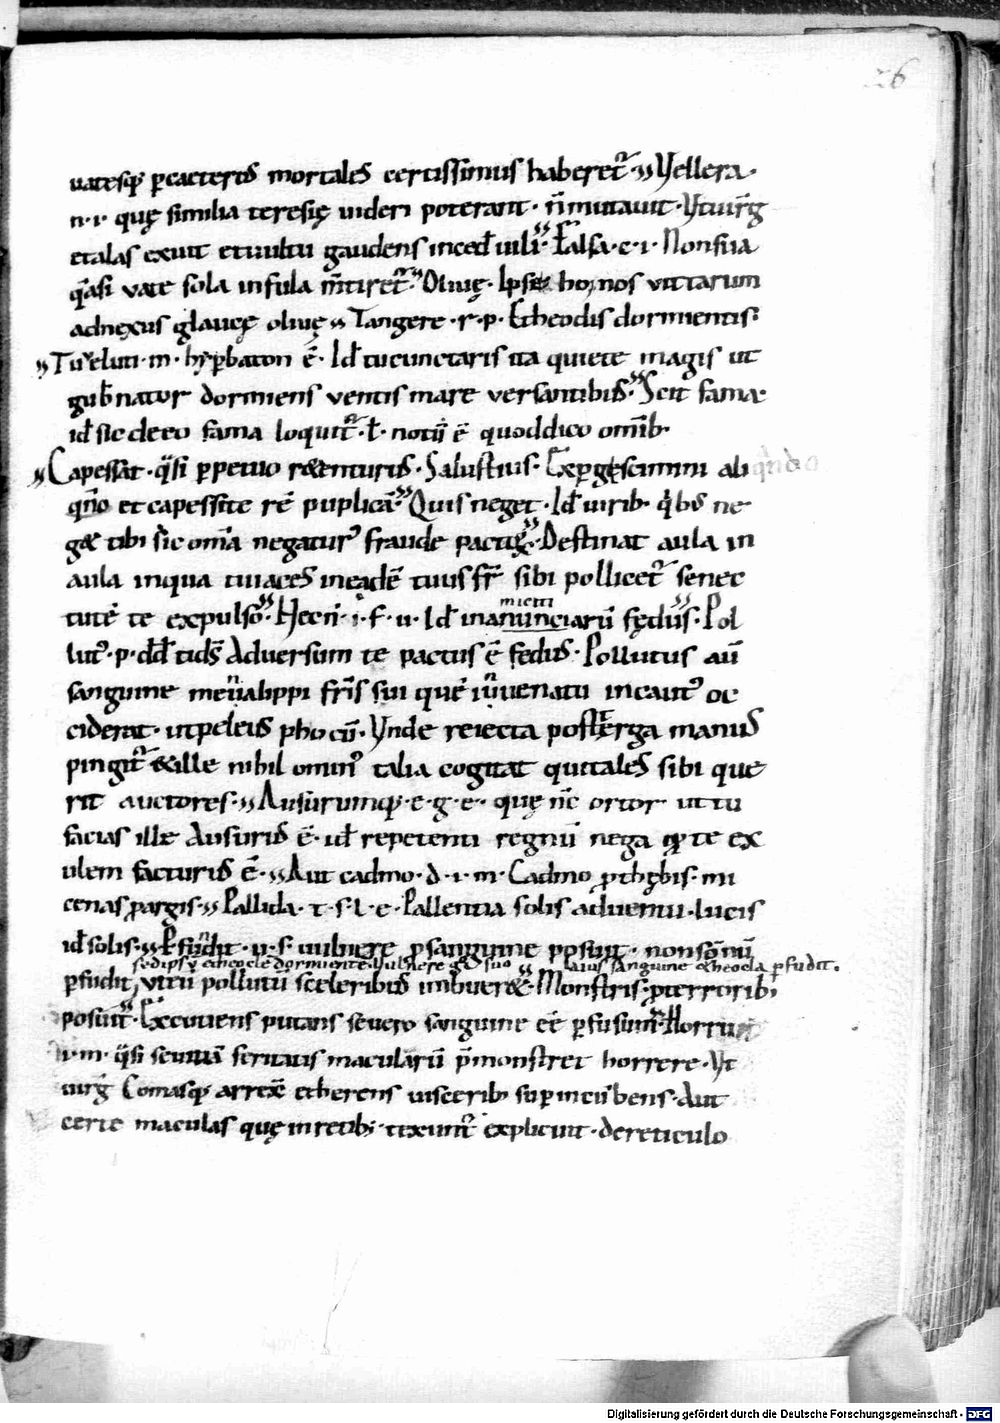 26
uatesq; p̄cacterꝰ mortales certissimus haberet᷑.,, Vellera.
n·i· quę similia teresię uideri poterant. n̄ mutauit. Vt uirḡ
et alas exuit et uultu gaudens inced̄ uili. Falsa·c·i· Non sua
q̄asi uate sola infula m̄tiret᷑. Oliuę. Ipse honos uittarum
adnexus glaucę oliuę ,, Tangere·r·p· Etheoclis dormientis.
,, Tu ueluti·m· hyp̄baton ē. Id̄ tu cunctaris ita quiete magis ut
gub̄nator dormiens ventis mare versantibus. Scit fama.
id̄ sic de eo fama loquit᷑. ł notū ē quod dico omīb.
,, Capessat. q̄si p̄petuo retenturus. Salustius. Exp̄gęscimini ali
qn̄o et capessite rē puplicā. Quis neget. Id̄ uirib. qͥbꝰ ne
gat tibi sic om̄ia negatur fraude pactꝰ. Destinat aula in
aula in qua tu iaces in eadē tuus fr̄ sibi pollicet᷑ senec
tutē te expulso. Hec n̄·i·f·u· Id̄ inanunciarū fędus. Pol
lut᷑·p·dd̄ tid̄s Aduersum te pactus ē fedus. Pollutus aū
sanguine menalippi fr̄is sui quē iuuenatu incautꝰ oc
ciderat. ut peleus phocū. Vnde reiecta post terga manus
pingit᷑ & ille nihil ominꝰ talia cogitat qui tales sibi que
rit auctores.,, Ausurumq;·e·g·e· quę nc̄ ortor ut tu
facias ille Ausurus ē. id̄ repetenti regnū nega ꝙ te ex
ulem facturus ē.,, Aut cadmo·d·i·m· Cadmo p̄ thębis. mi
cenas p̄ argis.,, Pallida·t·s·l·c· Pallentia solis aduentu. lucis
id̄ solis.,, Pfundit·u·s· uulnere p̄ sanguine posuit. non sōnū
sed ipsū etheoclē dormientē uulnere gd̄ suo aius sanguine etheocla p̄fudit.
p̄fudit, vtrū pollutū sceleribus imbueret. Monstris. p̄ terrorib;
posuit. Excutiens putans seuero sanguine eē p̄fusum. Horruit
i·m· q̄si seuitiā feritatis macularū p̄monstret horrere. Vt
uirḡ Comasq; arrexē et herens uisceribꝰ sup̄ incūbens. Aut
certe maculas quę in retib; texunt᷑ explicuit. de reticulo
Digitalisierung gefördert durch die Deutsche Forschungsgemeinschaft - DFG